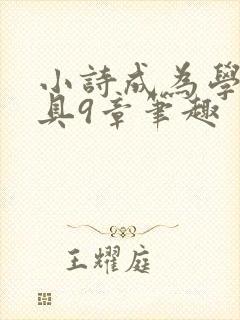 小詩成為學
具9章筆趣
王耀庭